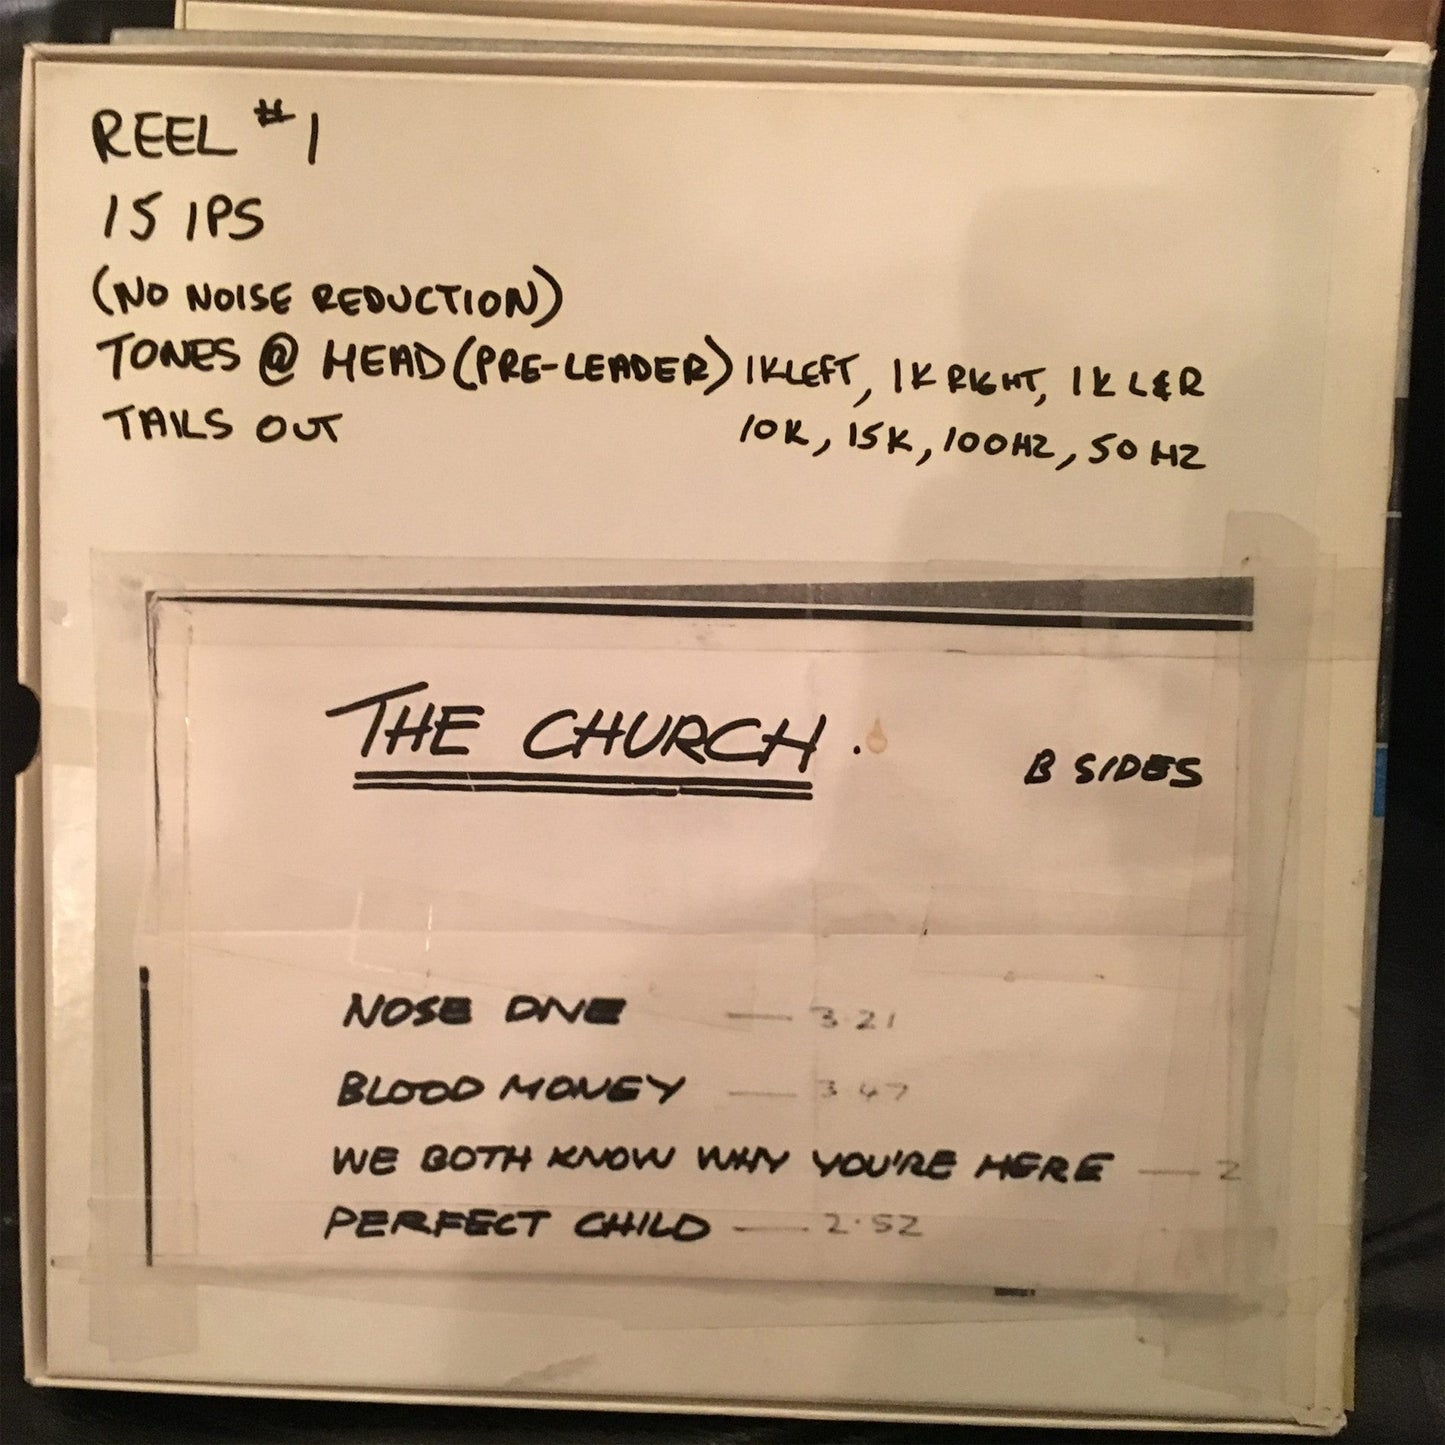 REEL #1
15 IPS
(NO NOISE REDUCTION)
TONES @ HEAD (PRE-LEADER) 1K LEFT, 1K RIGHT, 1K L&R
TAILS OUT 10K, 15K, 100HZ, 50HZ
THE CHURCH.
B SIDES
NOSE DIVE — 3.21
BLOOD MONEY — 3.47
WE BOTH KNOW WHY YOU'RE HERE — 2
PERFECT CHILD — 2.52